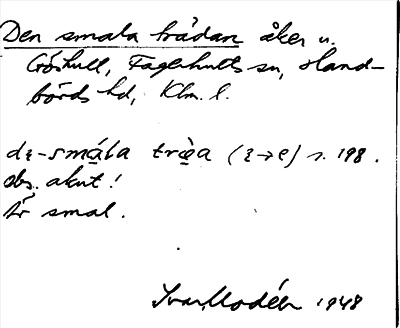 Den smala trådan åker u.
Gröshult, Fagerhults sn, Hand-
börds hd, Klm. l.
de-smala træa (ɛ→e) s. 198.
obs. akut!
Är smal.
Ivar Modéer 1948